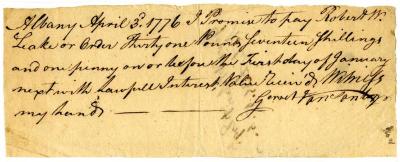 Albany April 3d. 1776 I Promise to pay Robert W.
Leake or Order Thirty one Pounds Seventeen Shillings
and one penny on or before the First day of January
next with Lawfull Interest, Value Receiv'd Witness
my hand